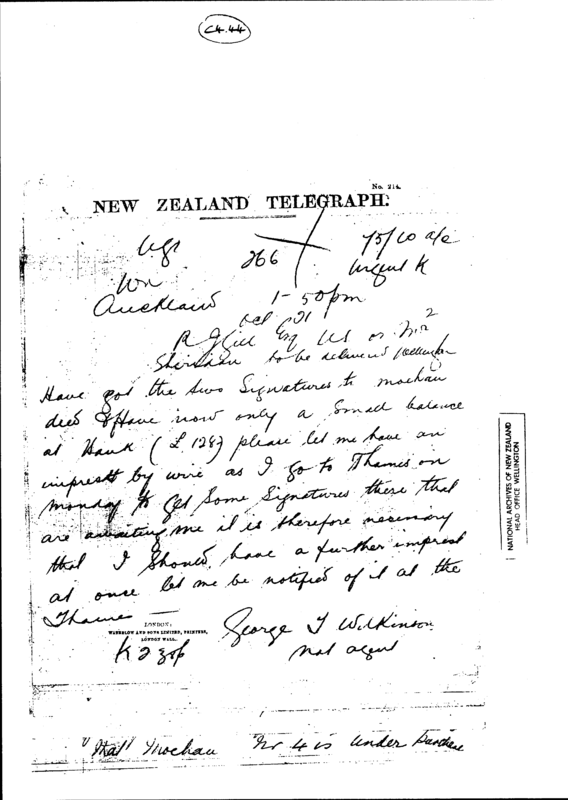 C4.44
No. 214.
NEW ZEALAND TELEGRAPH.
266
75/10 a/c
Urgent K
Wn
Auckland 1-50 pm
Oct 21
R J Gill Esq US or Mr
Sheridan to be delivered Wellington
Have got the two Signatures to mochau
deed & Have now only a small balance
at Bank (£128) please let me have an
imprest by wire as I go to Thames on
monday to get Some Signatures there that
are awaiting me it is therefore necessary
that I should have a further imprest
at once let me be notified of it at the
Thames
LONDON:
WATERLOW AND SONS LIMITED, PRINTERS,
LONDON WALL.
George T Wilkinson
nat agent
"Mal" Mochau No 4 is under
NATIONAL ARCHIVES OF NEW ZEALAND
HEAD OFFICE WELLINGTON